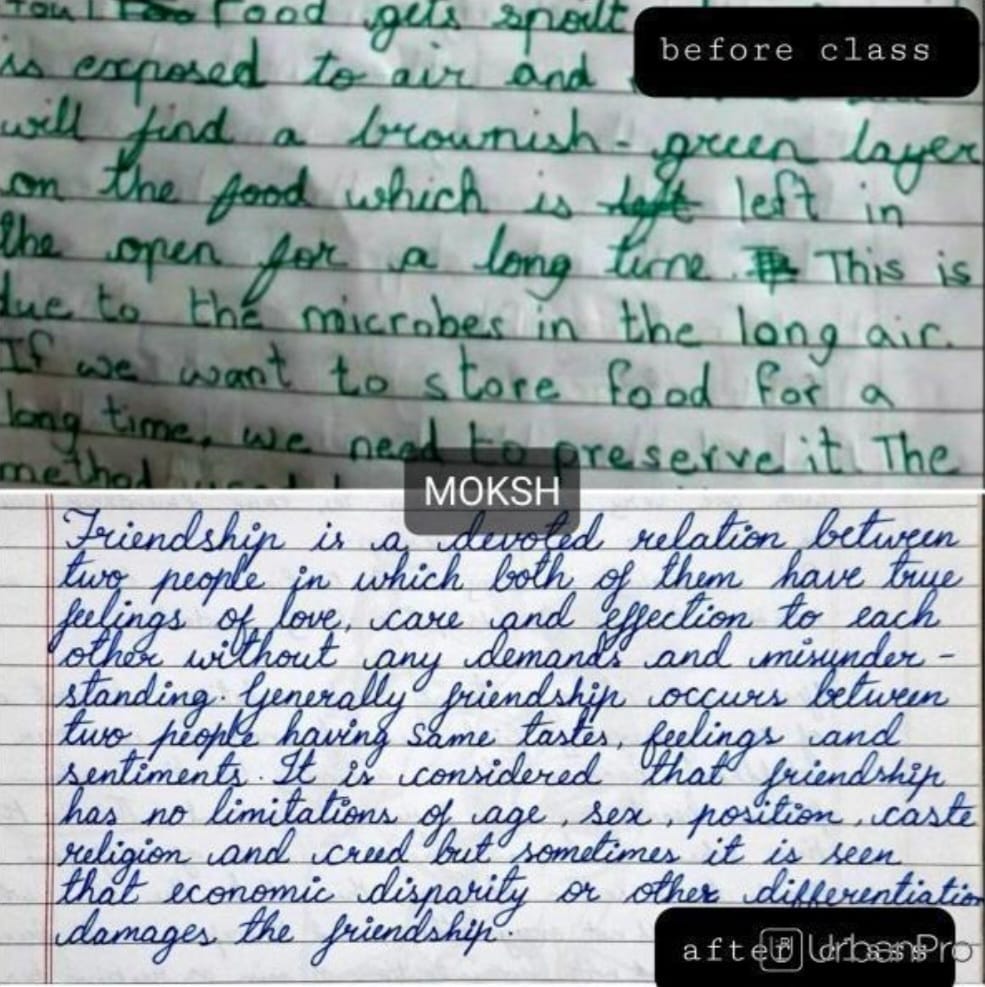 Food gets spoilt
before class
is exposed to air and
will find a brownish - green layer
on the food which is left left in
the open for a long time This is
due to the microbes in the long air.
If we want to store food for a
long time, we need to preserve it. The
method
MOKSH
Friendship is a devoted relation between
two people in which both of them have true
feelings of love, care and effection to each
other without any demands and misunder -
standing. Generally friendship occurs between
two people having same tastes, feelings and
sentiments. It is considered that friendship
has no limitations of age, sex, position, caste
religion and creed but sometimes it is seen
that economic disparity or other differentiation
damages the friendship.
after class
UrbanPro